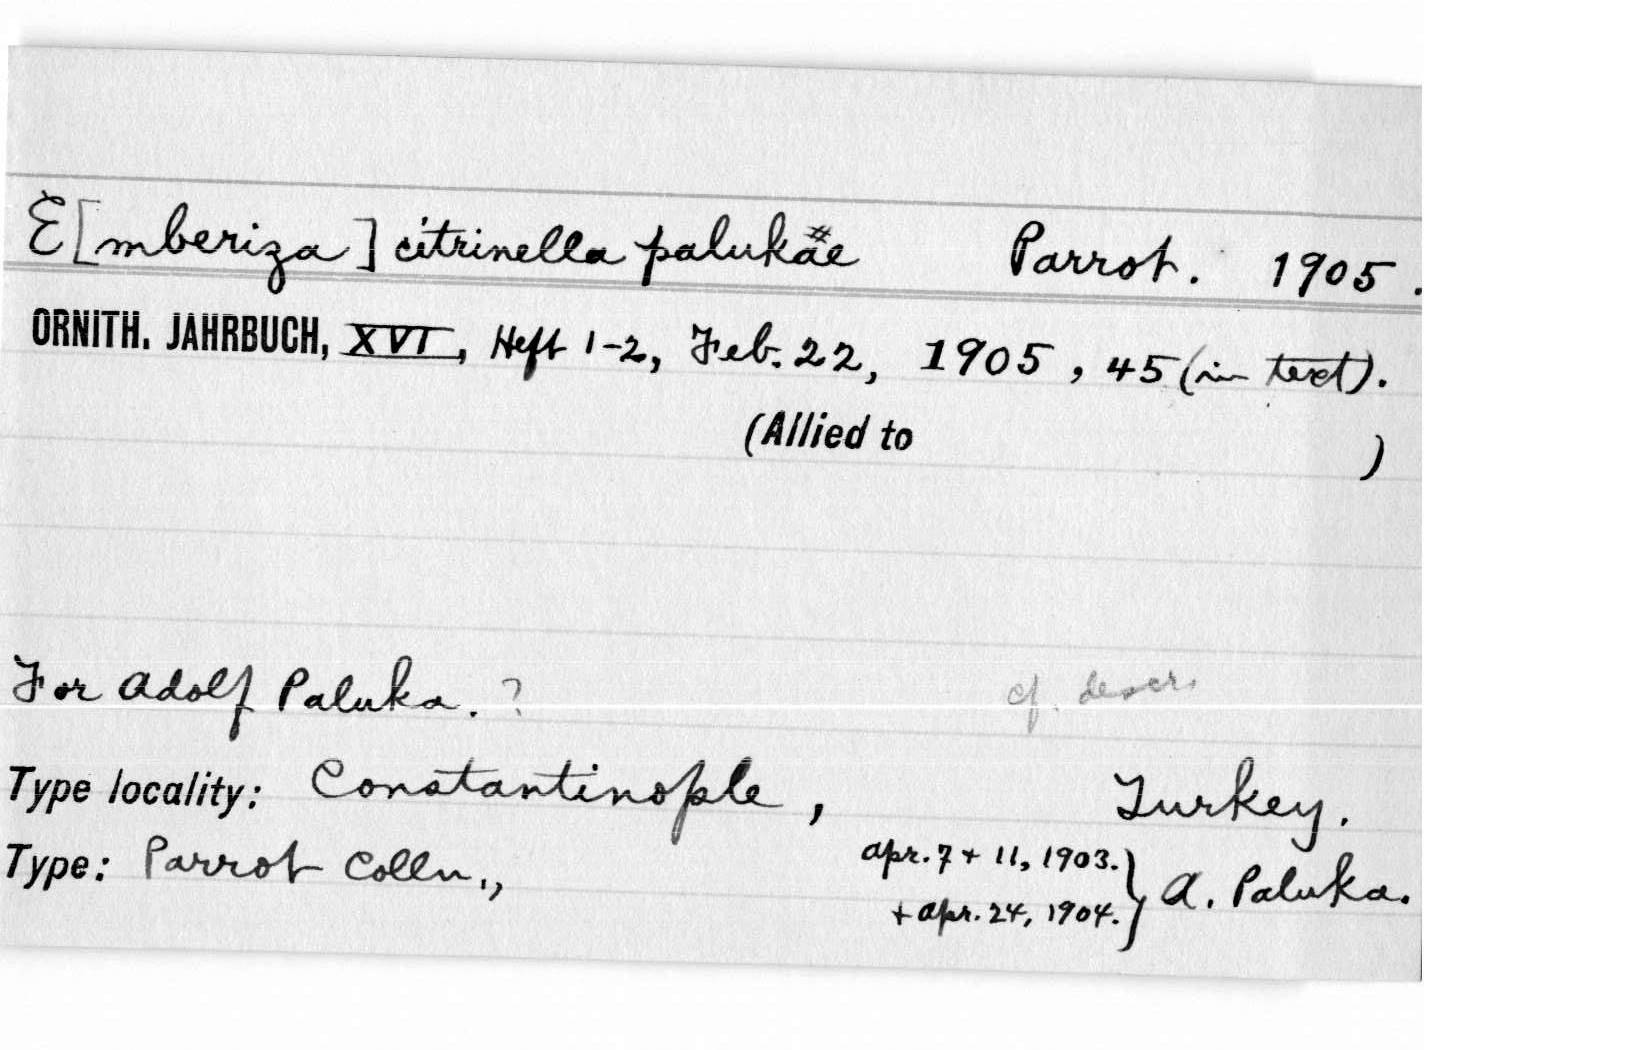 E[mberiza] citrinella palukäe Parrot. 1905.
ORNITH. JAHRBUCH, XVI, Heft 1-2, Feb. 22, 1905, 45 (in text).
(Allied to )
For Adolf Paluka. ? cf. descr.
Type locality: Constantinople, Turkey.
Type: Parrot Colln., Apr. 7 + 11, 1903. } A. Paluka.
+ Apr. 24, 1904.